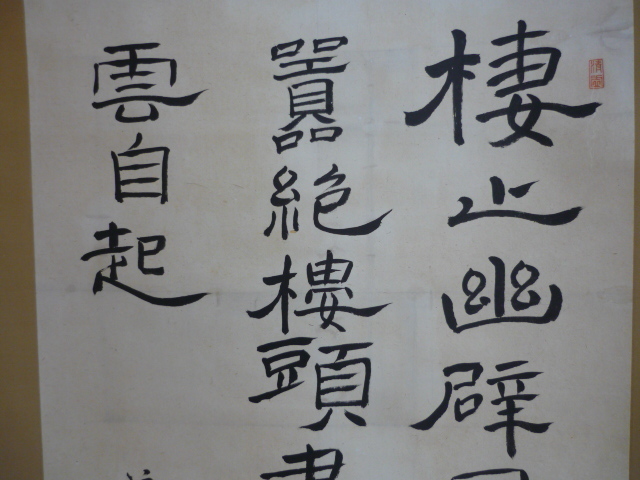 棲止幽僻
囂絶樓頭
雲自起